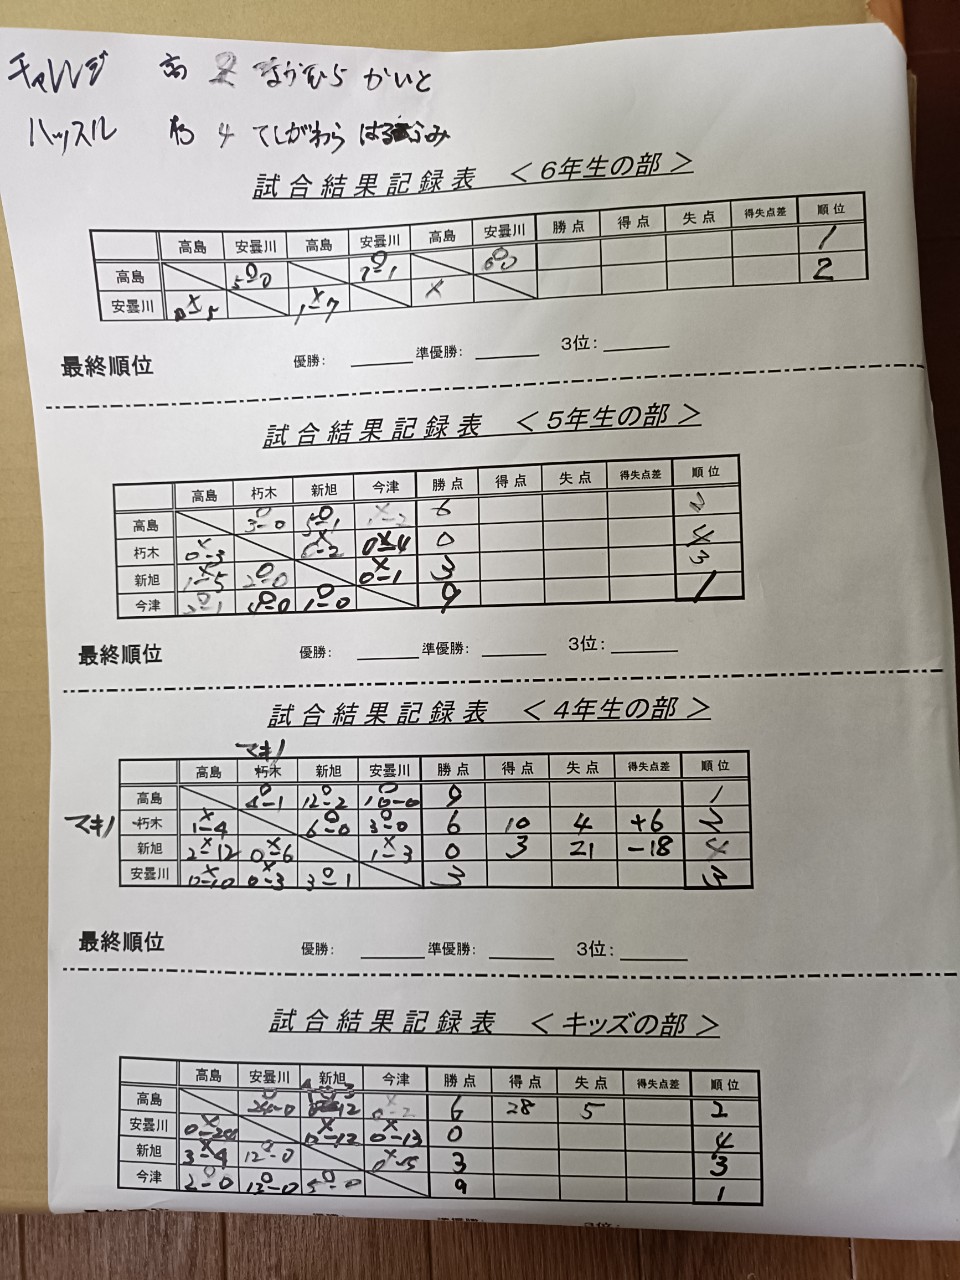 チャレンジ 高 2 なかむら かいと
ハッスル 4 てしがわら はるふみ
試合結果記録表 ＜6年生の部＞
高島 安曇川 高島 安曇川 高島 安曇川 勝点 得点 失点 得失点差 順位
高島 ○ 5-0 ○ 7-1 ○ 6-0 1
安曇川 × 0-5 × 1-7 × 2
最終順位 優勝： 準優勝： 3位：
試合結果記録表 ＜5年生の部＞
高島 朽木 新旭 今津 勝点 得点 失点 得失点差 順位
高島 ○ 3-0 ○ 5-1 × 1-2 6 2
朽木 × 0-3 × 0-2 × 0-4 0 4
新旭 × 1-5 ○ 2-0 × 0-1 3 3
今津 ○ 2-1 ○ -0 ○ 1-0 9 1
最終順位 優勝： 準優勝： 3位：
試合結果記録表 ＜4年生の部＞
マキノ
高島 朽木 新旭 安曇川 勝点 得点 失点 得失点差 順位
高島 ○ 4-1 ○ 12-2 ○ 10-0 9 1
マキノ 朽木 × 1-4 ○ 6-0 ○ 3-0 6 10 4 +6 2
新旭 × 2-12 × 0-6 × 1-3 0 3 21 -18 4
安曇川 × 0-10 × 0-3 ○ 3-1 3 3
最終順位 優勝： 準優勝： 3位：
試合結果記録表 ＜キッズの部＞
高島 安曇川 新旭 今津 勝点 得点 失点 得失点差 順位
高島 ○ 24-0 × 0-2 6 28 5 2
安曇川 × 0-24 × 0-12 × 0-13 0 4
新旭 × 3-4 ○ 12-0 × 0-5 3 3
今津 ○ 2-0 ○ 13-0 ○ 5-0 9 1